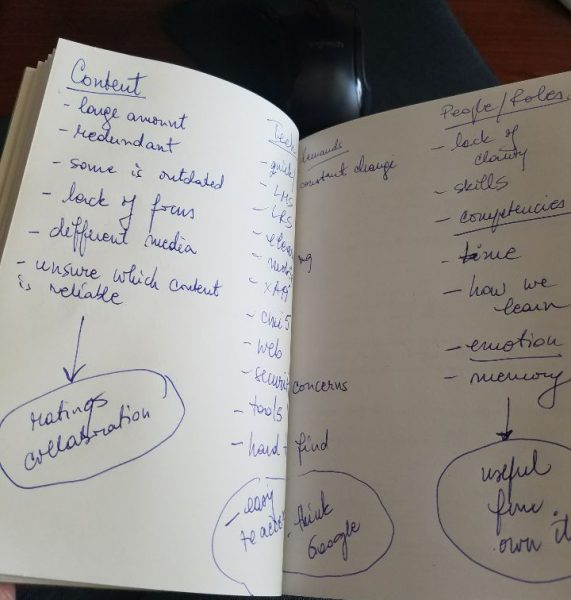 Content
- large amount
- redundant
- some is outdated
- lack of focus
- different media
- unsure which content
is reliable
ratings
collaboration
- LMS
- LRS
- xAPI
- cmi5
- web
- security concerns
- tools
- hard find
- easy
- think
Google
constant change
People/Roles
- lack of
clarity
- skills
- competencies
- time
- how we
learn
- emotion
- memory
useful
fun
own it